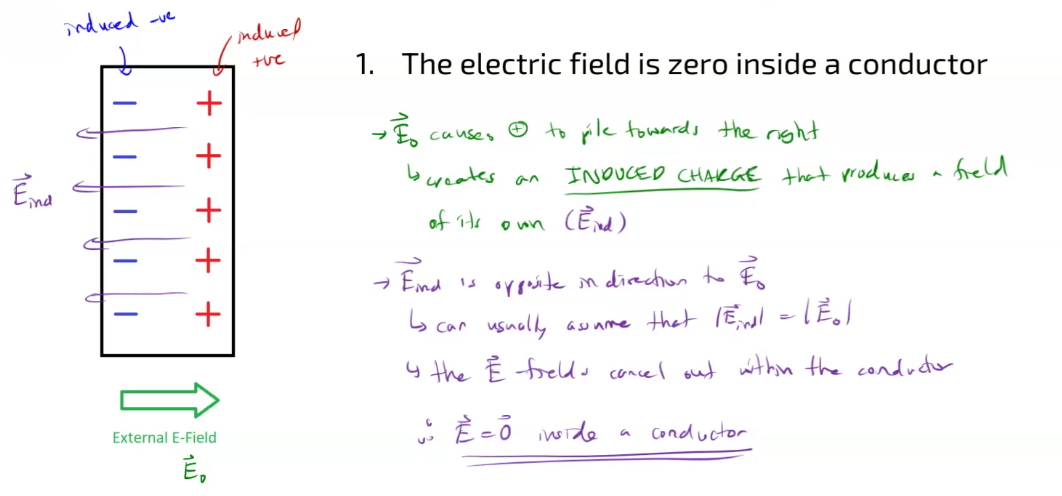 induced -ve
induced
+ve
1. The electric field is zero inside a conductor
→ E⃗₀ causes ⊕ to pile towards the right
↳ creates an INDUCED CHARGE that produces a field
of its own (E⃗ind)
→ E⃗ind is opposite in direction to E⃗₀
↳ can usually assume that |E⃗ind| = |E⃗₀|
↳ the E⃗ fields cancel out within the conductor
∴ E⃗ = 0⃗ inside a conductor
− +
− +
E⃗ind
− +
− +
− +
External E-Field
E⃗₀